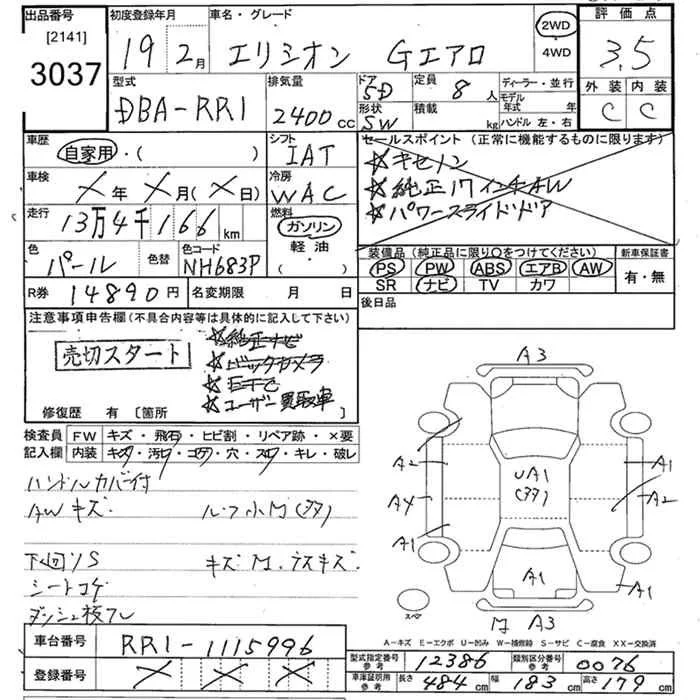 出品番号
[2141]
3037
初度登録年月
19 2月
車名・グレード
エリシオン Gエアロ
2WD
4WD
評価点
3.5
外装 内装
C C
型式
DBA-RR1
排気量
2400cc
ドア
5D
形状
SW
定員
8人
積載
kg
ディーラー・並行
モデル年式 年
ハンドル 左・右
車歴
自家用・( )
シフト
IAT
車検
×年×月(×日)
冷房
WAC
走行
13万4千166km
燃料
ガソリン
軽油
( )
色
パール
色替
色コード
NH683P
セールスポイント(正常に機能するものに限ります)
☆キセノン
☆純正17インチAW
☆パワースライドドア
装備品(純正品に限り○をつけてください)
新車保証書
PS PW ABS エアB AW
SR ナビ TV カワ
有・無
R券 14890円
名変期限 月 日
後日品
注意事項申告欄(不具合内容等は具体的に記入して下さい)
売切スタート
☆純正ナビ
☆バックカメラ
☆ETC
☆ユーザー買取車
修復歴 有 [箇所
検査員記入欄
FW キズ・飛石・ヒビ割・リペア跡・×要
内装 キズ・汚レ・コゲ・穴・スレ・キレ・破レ
ハンドルカバー付
AWキズ ルーフ小M(多)
下回りS キズM、ラスキズ
シートコゲ
ダッシュ枝フレ
A3
A2 A1
UA1
(多)
A4 A2
A1
A1 A1
スペア
M A3
A-キズ E-エクボ U-凹み W-補修跡 S-サビ C-腐食 XX-交換済
車台番号
RR1-1115996
登録番号
× × ×
型式指定番号 参考 12386
類別区分番号 参考 0076
車庫証明用 参考 長さ 484cm 幅 183cm 高さ 179cm